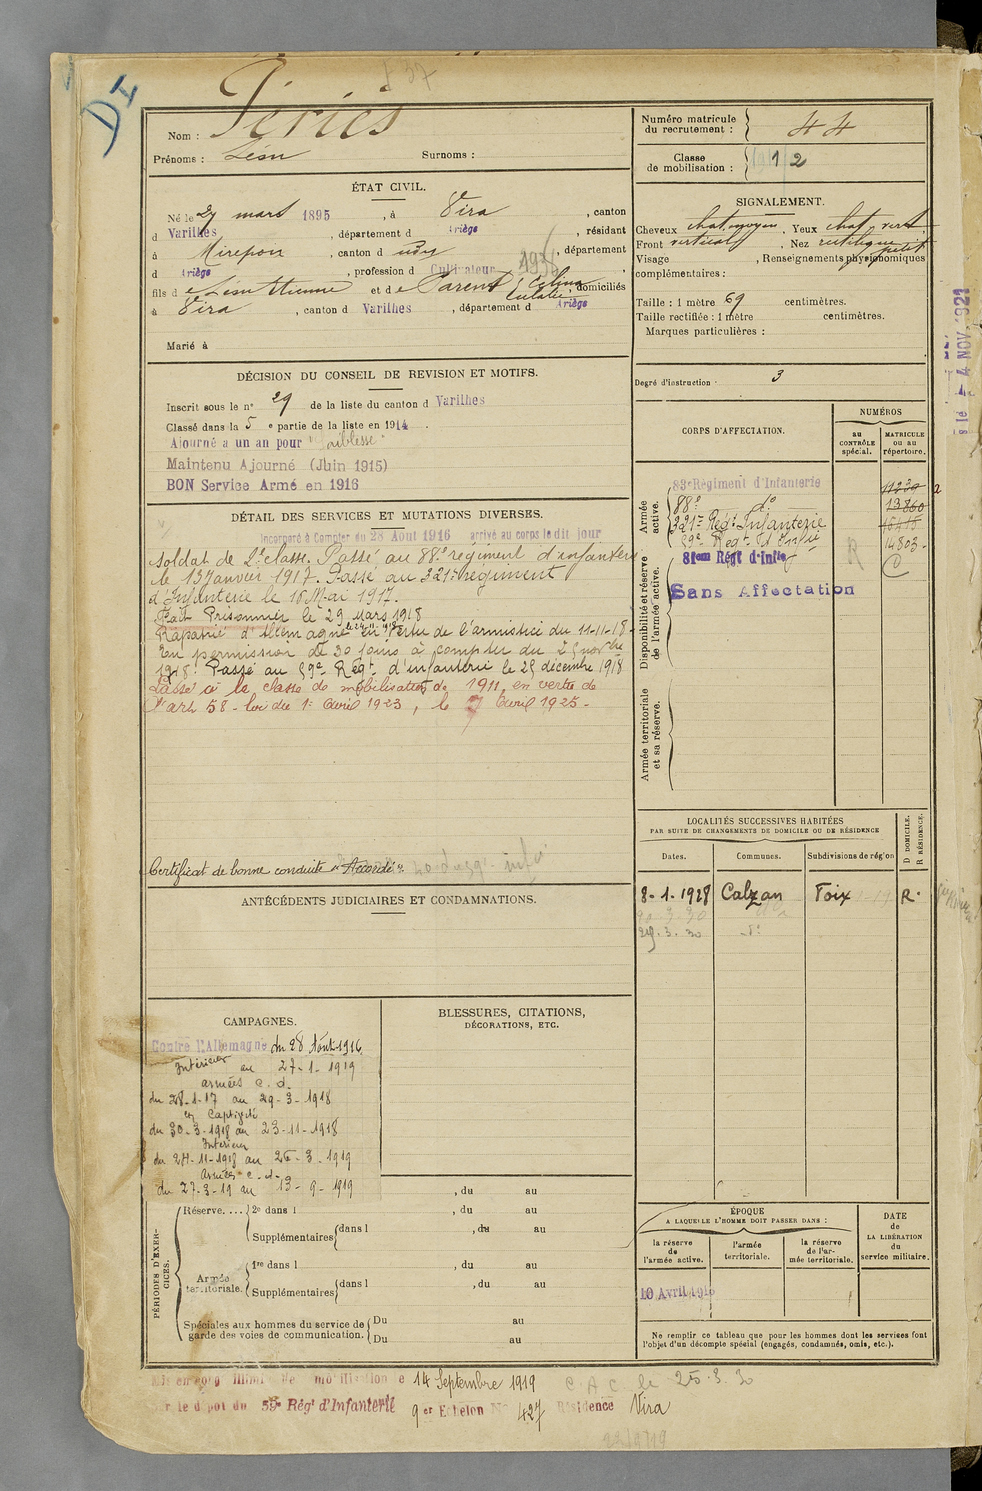 D I
Nom : Périès
Prénoms : Léon Surnoms :
ÉTAT CIVIL.
Né le 29 mars 1895, à Vira, canton
d Varilhes, département d Ariège, résidant
à Mirepoix, canton d udy, département
d Ariège, profession d Cultivateur 1936,
fils d e Léon Etienne et d e Parent domiciliés
à Vira, canton d Varilhes, département d Ariège
Marié à
DÉCISION DU CONSEIL DE REVISION ET MOTIFS.
Inscrit sous le n° 29 de la liste du canton d Varilhes
Classé dans la 5 e partie de la liste en 1914.
Ajourné a un an pour "Faiblesse"
Maintenu Ajourné (Juin 1915)
BON Service Armé en 1916
DÉTAIL DES SERVICES ET MUTATIONS DIVERSES.
Incorporé à Compter du 28 Aout 1916 arrivé au corps le dit jour
soldat de 2e classe. Passé au 88e régiment d'infanterie
le 13 Janvier 1917. Passé au 321e régiment
d'Infanterie le 16 Mai 1917.
Fait Prisonnier le 29 Mars 1918
Rapatrié d'Allemagne le 24-11-1918 en vertu de l'armistice du 11-11-18-
En permission de 30 jours à compter du 25 novbre
1918. Passé au 59e Régt d'infanterie le 25 décembre 1918
Passé à la classe de mobilisation de 1911, en vertu de
l'art 58 - loi du 1er Avril 1923, le 7 Avril 1925-
Certificat de bonne conduite "Accordé".
ANTÉCÉDENTS JUDICIAIRES ET CONDAMNATIONS.
CAMPAGNES.
Contre l'Allemagne du 28 Août 1916
Intérieur au 27-1-1919
armées c. d.
du 28-1-17 au 29-3-1918
en Captivité
du 30-3-1918 au 23-11-1918
Intérieur
du 24-11-1918 au 26-3-1919
Armées c. d.
du 27-3-19 au 13-9-1919
BLESSURES, CITATIONS,
DÉCORATIONS, ETC.
, du au
PÉRIODES D'EXERCICES.
Réserve.... 2e dans l , du au
Supplémentaires dans l , du au
Armée territoriale. 1re dans l , du au
Supplémentaires dans l , du au
Spéciales aux hommes du service de
garde des voies de communication.
Du au
Du au
Numéro matricule
du recrutement : 44
Classe
de mobilisation : 12
SIGNALEMENT.
Cheveux chat moyen, Yeux chat vert,
Front vertical, Nez rectiligne petit
Visage , Renseignements physionomiques
complémentaires :
Taille : 1 mètre 69 centimètres.
Taille rectifiée : 1 mètre centimètres.
Marques particulières :
Degré d'instruction 3
CORPS D'AFFECTATION.
NUMÉROS
au
CONTRÔLE
spécial.
MATRICULE
ou au
répertoire.
Armée
active.
83e Régiment d'Infanterie 11239
88e do 13860
321e Régt Infanterie 16418
59e Regt d'Infie 14803
Disponibilité et réserve
de l'armée active.
81em Régt d'Infie
R
C
Sans Affectation
Armée territoriale
et sa réserve.
LOCALITÉS SUCCESSIVES HABITÉES
PAR SUITE DE CHANGEMENTS DE DOMICILE OU DE RÉSIDENCE
Dates. Communes. Subdivisions de région
D DOMICILE.
R RÉSIDENCE.
8-1-1928 Calzan Foix R.
29.3.30 do
ÉPOQUE
A LAQUELLE L'HOMME DOIT PASSER DANS :
la réserve
de
l'armée active.
l'armée
territoriale.
la réserve
de l'ar-
mée territoriale.
DATE
de
LA LIBÉRATION
du
service militaire.
10 Avril 1916
Ne remplir ce tableau que pour les hommes dont les services font
l'objet d'un décompte spécial (engagés, condamnés, omis, etc.).
14 Septembre 1919 C.A.C. le 25.8.30
r le dépôt du 59e Régt d'Infanterie 9er Echelon No 427 Résidence Vira
4 NOV. 1921